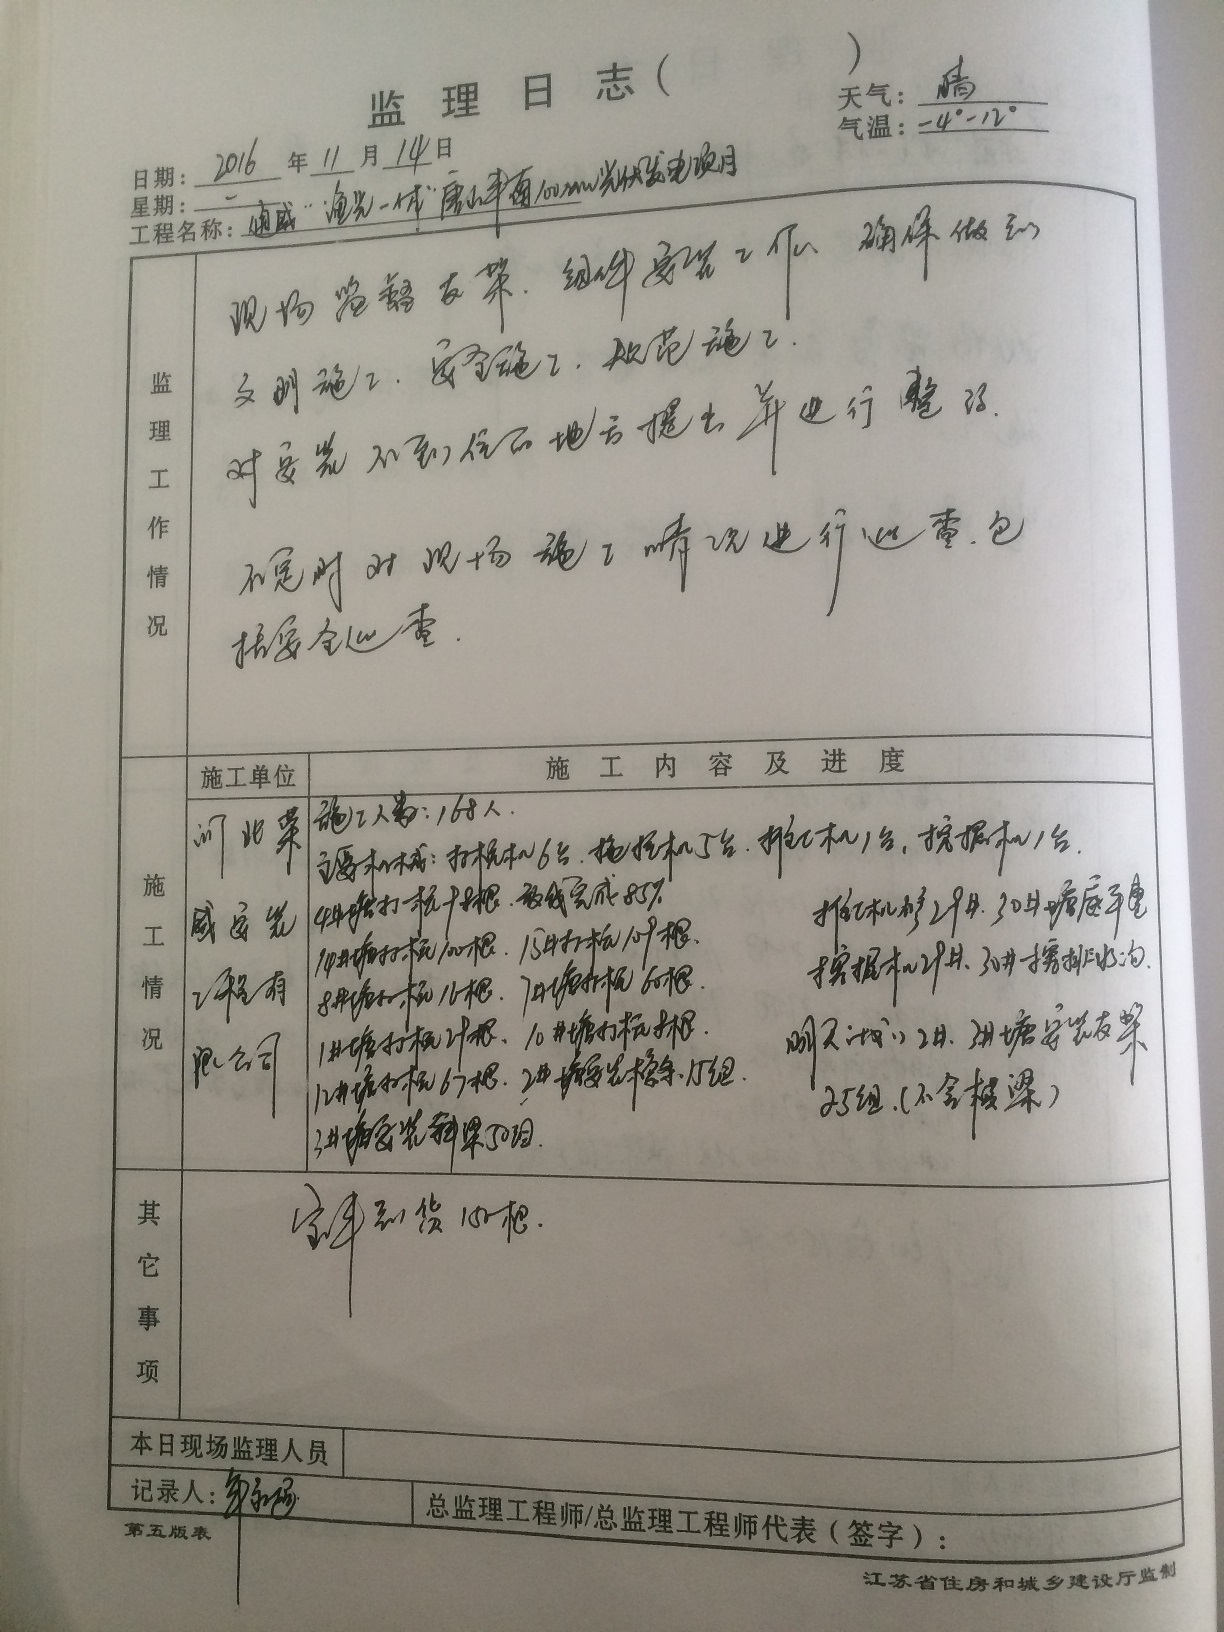 监理日志（ ）
天气：晴
气温：-4°-12°
日期：2016年11月14日
星期：一
工程名称：通威"渔光一体"唐山丰南100MW光伏发电项目
监理工作情况
现场监督支架、组件安装工作、确保做到
文明施工、安全施工、规范施工.
对安装不到位的地方提出并进行整改.
不定时对现场施工情况进行巡查.包
括安全巡查.
施工情况
施工单位
施工内容及进度
河北荣
威安装
工程有
限公司
施工人数：168人.
主要机械：打桩机6台、拖拉机5台、推土机1台，挖掘机1台.
4#塘打桩98根、放线完成85%
14#塘打桩100根、15#打桩109根、
8#塘打桩16根、7#塘打桩60根.
1#塘打桩29根、10#塘打桩8根.
12#塘打桩67根、2#塘安装檩条15组.
3#塘安装斜梁50组.
推土机修29#、30#塘底平整
挖掘机29#、30#挖排水沟.
明天计划2#、3#塘安装支架
25组.(不含横梁)
其它事项
到货150根.
本日现场监理人员
记录人：
总监理工程师/总监理工程师代表（签字）：
第五版表
江苏省住房和城乡建设厅监制